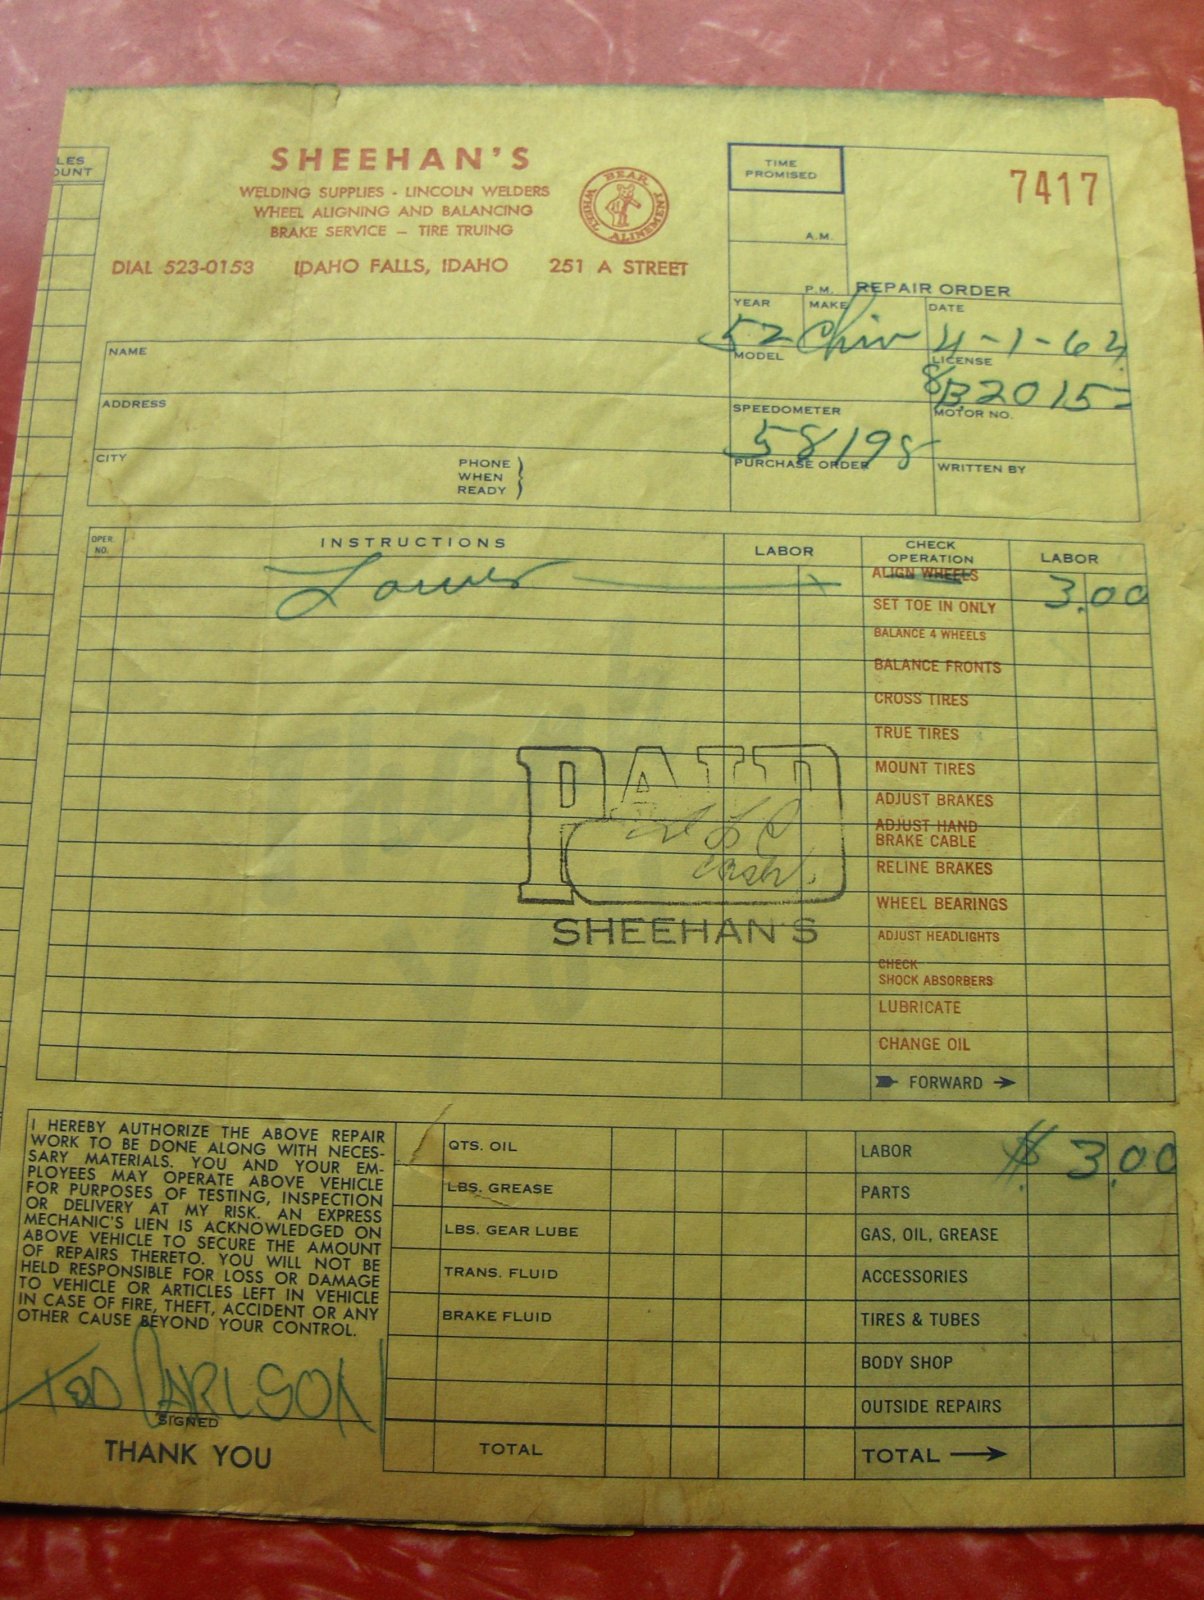 LES
OUNT
SHEEHAN'S
WELDING SUPPLIES - LINCOLN WELDERS
WHEEL ALIGNING AND BALANCING
BRAKE SERVICE - TIRE TRUING
DIAL 523-0153 IDAHO FALLS, IDAHO 251 A STREET
BEAR
WHEEL ALINEMENT
TIME
PROMISED
A.M.
P.M.
7417
REPAIR ORDER
YEAR MAKE DATE
52 4-1-63
MODEL LICENSE
8B2015
SPEEDOMETER MOTOR NO.
58198
PURCHASE ORDER WRITTEN BY
NAME
ADDRESS
CITY
PHONE
WHEN
READY
OPER.
NO.
INSTRUCTIONS LABOR
CHECK
OPERATION
LABOR
ALIGN WHEELS 3.00
SET TOE IN ONLY
BALANCE 4 WHEELS
BALANCE FRONTS
CROSS TIRES
TRUE TIRES
MOUNT TIRES
ADJUST BRAKES
ADJUST HAND
BRAKE CABLE
RELINE BRAKES
WHEEL BEARINGS
ADJUST HEADLIGHTS
CHECK
SHOCK ABSORBERS
LUBRICATE
CHANGE OIL
FORWARD
PAID
cash
SHEEHAN'S
I HEREBY AUTHORIZE THE ABOVE REPAIR
WORK TO BE DONE ALONG WITH NECES-
SARY MATERIALS. YOU AND YOUR EM-
PLOYEES MAY OPERATE ABOVE VEHICLE
FOR PURPOSES OF TESTING, INSPECTION
OR DELIVERY AT MY RISK. AN EXPRESS
MECHANIC'S LIEN IS ACKNOWLEDGED ON
ABOVE VEHICLE TO SECURE THE AMOUNT
OF REPAIRS THERETO. YOU WILL NOT BE
HELD RESPONSIBLE FOR LOSS OR DAMAGE
TO VEHICLE OR ARTICLES LEFT IN VEHICLE
IN CASE OF FIRE, THEFT, ACCIDENT OR ANY
OTHER CAUSE BEYOND YOUR CONTROL.
TED CARLSON
SIGNED
THANK YOU
QTS. OIL
LBS. GREASE
LBS. GEAR LUBE
TRANS. FLUID
BRAKE FLUID
TOTAL
LABOR $ 3.00
PARTS
GAS, OIL, GREASE
ACCESSORIES
TIRES & TUBES
BODY SHOP
OUTSIDE REPAIRS
TOTAL